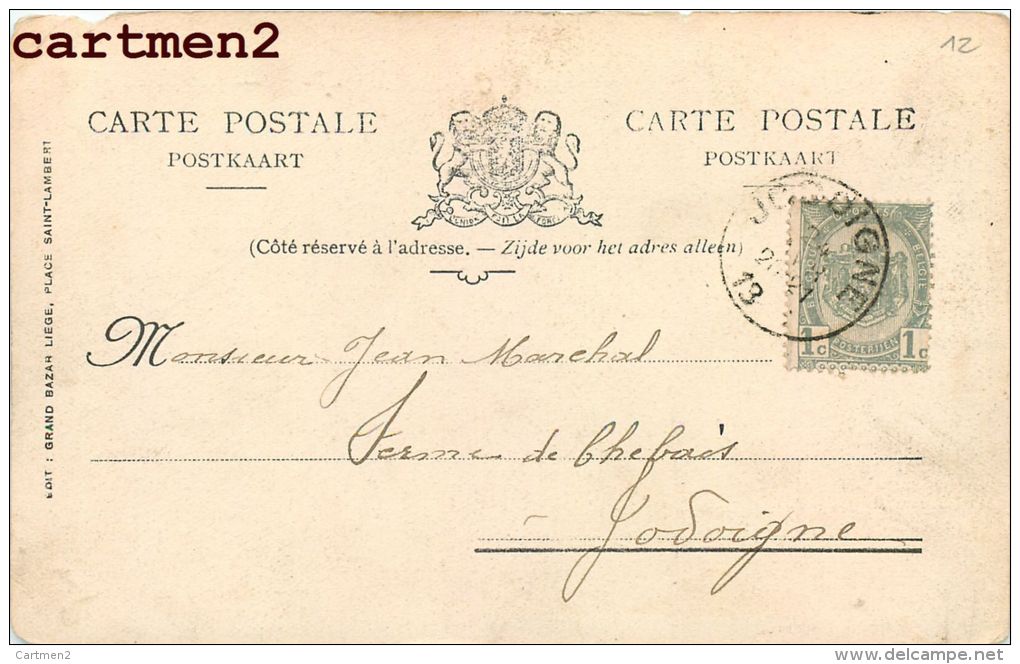 cartmen2
12
CARTE POSTALE
POSTKAART
CARTE POSTALE
POSTKAART
(Côté réservé à l'adresse. — Zijde voor het adres alleen)
JODOIGNE
13
1c POSTERIJEN 1c
Monsieur Jean Marchal
Ferme de Chebais
à Jodoigne
EDIT : GRAND BAZAR LIEGE, PLACE SAINT-LAMBERT
Cartmen2
delcampe.net